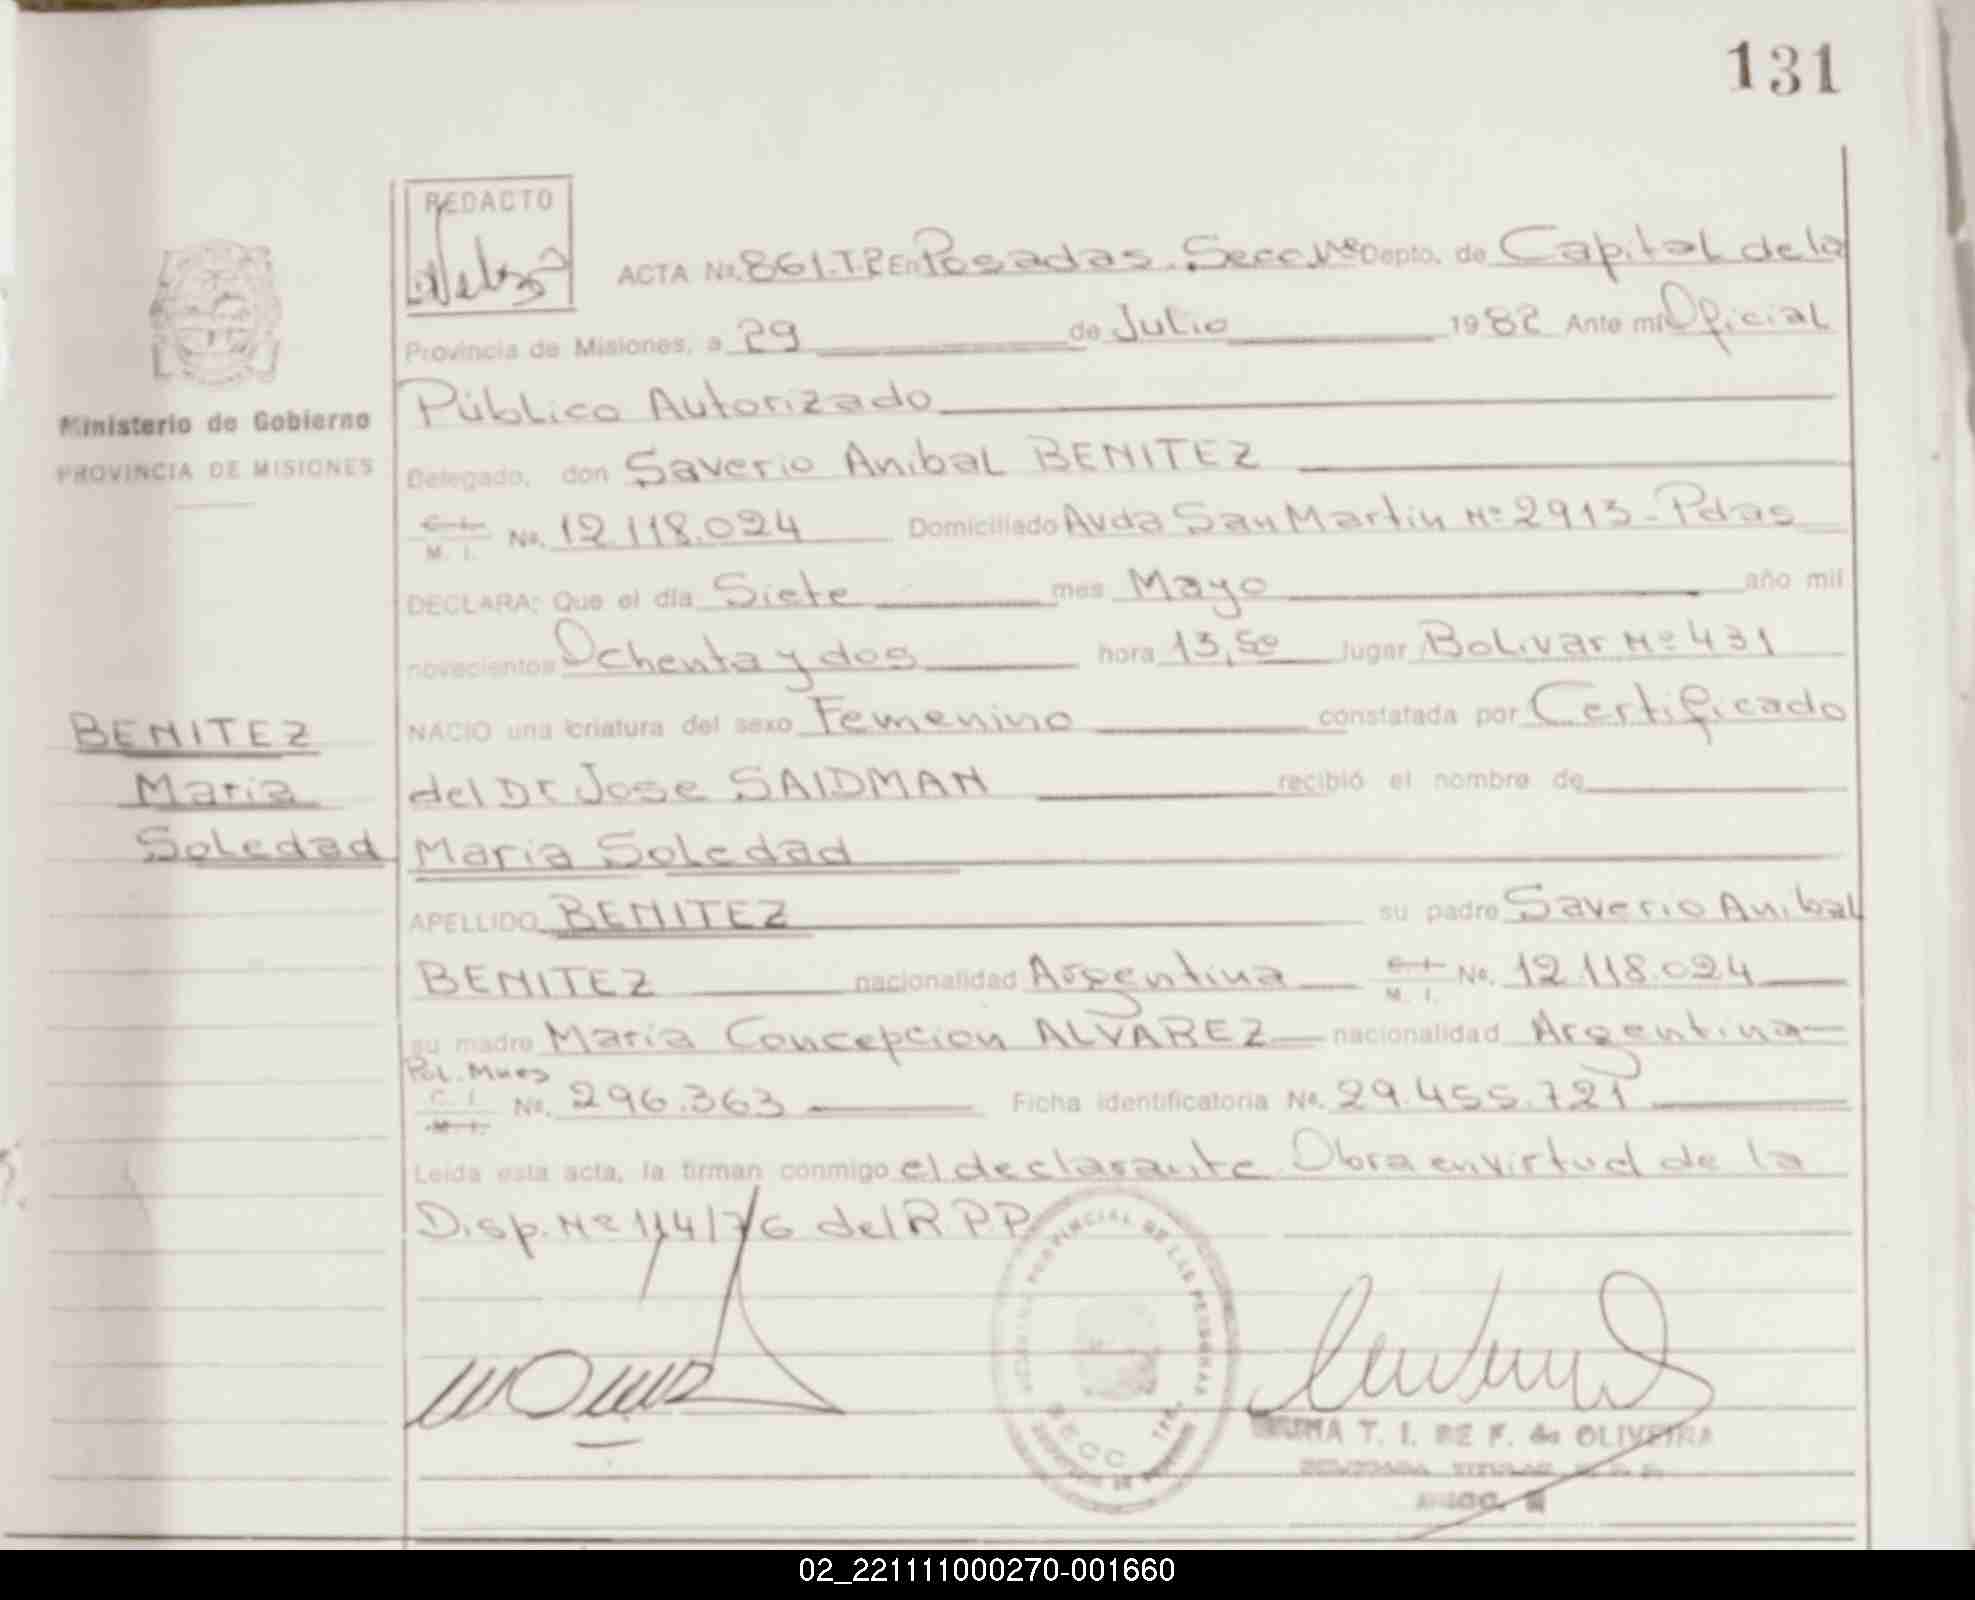 131
REDACTO
ACTA No. 861.T.P. En Posadas. Secc. Depto. de Capital de la
Provincia de Misiones, a 29 de Julio 1982 Ante mi Oficial
Público Autorizado
Ministerio de Gobierno
PROVINCIA DE MISIONES
Delegado, don Saverio Anibal BENITEZ
C. I.
M. I. No. 12.118.024 Domiciliado Avda San Martin Nº 2913 - Pdas
DECLARA: Que el día Siete mes Mayo año mil
novecientos Ochenta y dos hora 13,50 lugar Bolivar Nº 431
NACIO una criatura del sexo Femenino constatada por Certificado
del Dr Jose SAIDMAN recibió el nombre de
BENITEZ
Maria
Soledad
Maria Soledad
APELLIDO BENITEZ su padre Saverio Anibal
BENITEZ nacionalidad Argentina C. I. M. I. No. 12.118.024
su madre Maria Concepcion ALVAREZ nacionalidad Argentina
Pol. Mnes
C. I.
M. I. No. 296.363 Ficha identificatoria No. 29.455.721
Leida esta acta, la firman conmigo el declarante Obra en virtud de la
Disp. Nº 114/76 del R P P
PROVINCIAL DE LAS PERSONAS
SECC
T. I. DE F. de OLIVEIRA
02_221111000270-001660